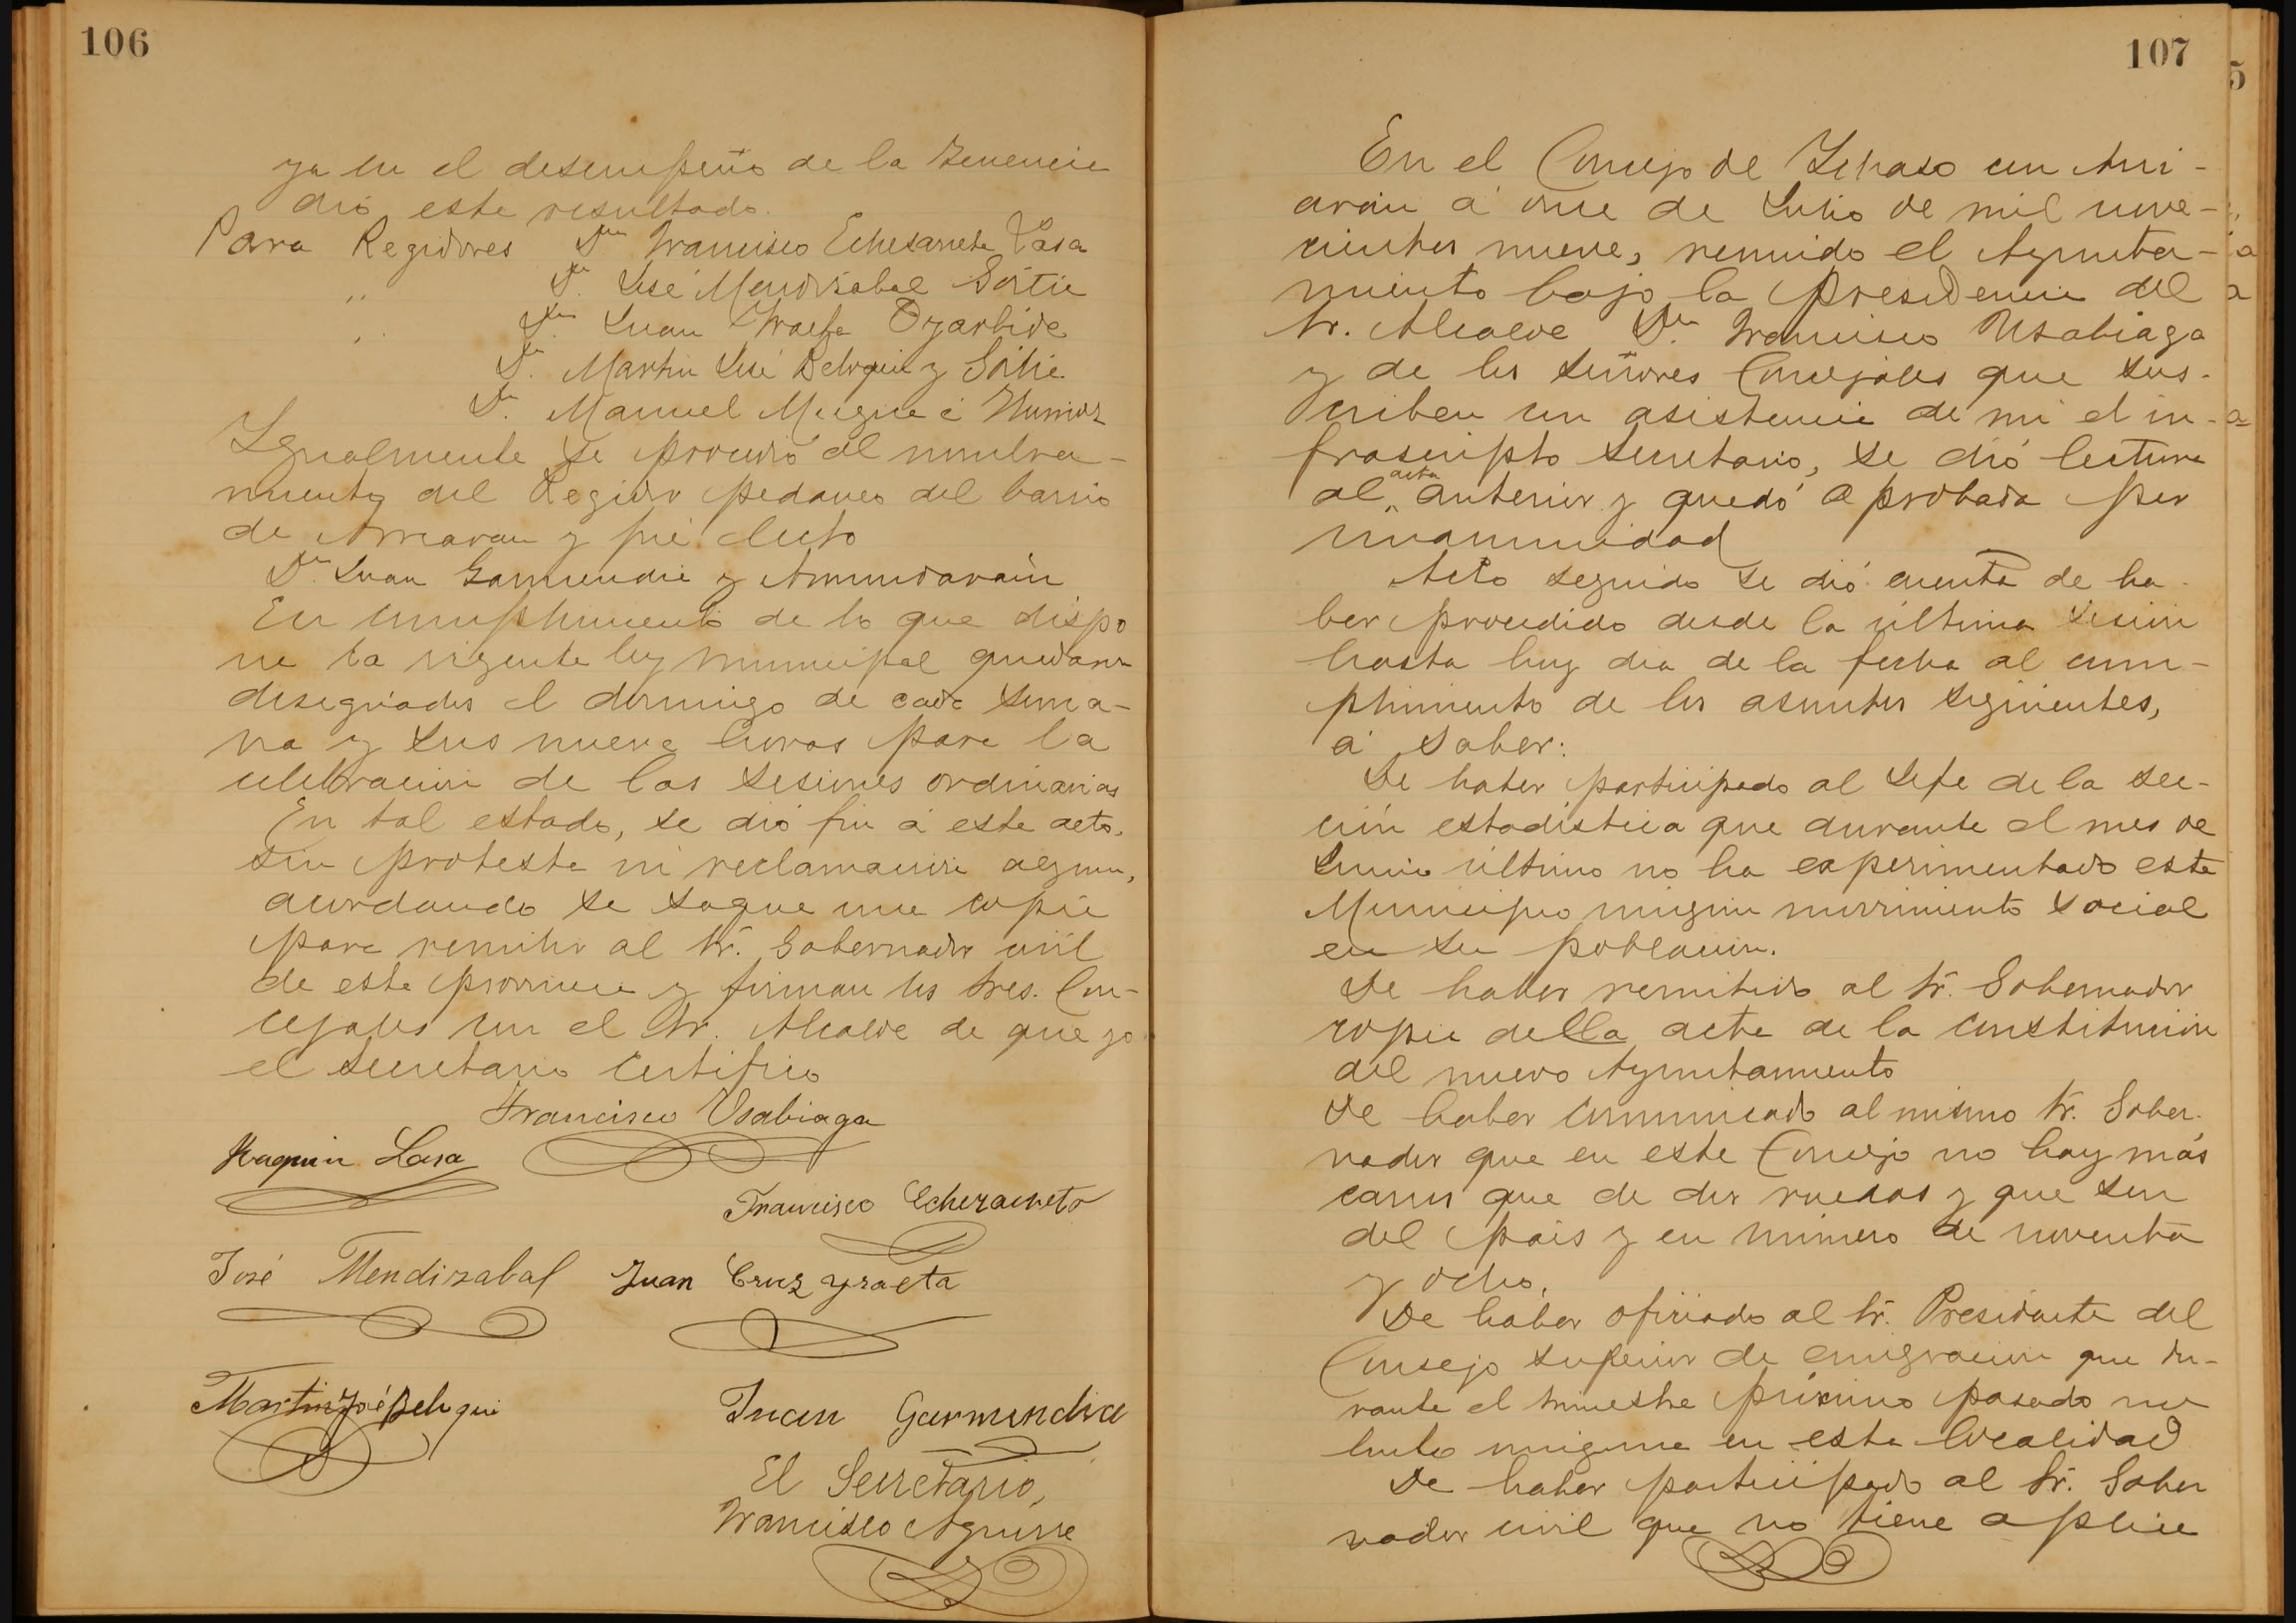 106
ya en el desempeño de la Tenencia
dió este resultado.
Para Regidores Dn Francisco Echezarreta Lasa
" Dn José Mendizabal Goitia
" Dn Juan Yraeta Oyarbide
Dn Martin José Beloqui y Goitia
Dn Manuel Mugica é
Igualmente se procedió al nombra-
miento del Regidor pedaneo del barrio
de Arriaran y fué electo
Dn Juan Garmendia y Amundarain
En cumplimiento de lo que dispo
ne la vigente ley municipal quedaron
desegnados el domingo de cada sema-
na y sus nueve horas para la
celebración de las sesiones ordinarias
En tal estado, se dió fin á este acto,
sin protesta ni reclamación alguna,
acordando se saque una copia
para remitir al Sr. Gobernador civil
de esta provincia y firman los Sres. Con-
cejales con el Sr. Alcalde de que yo
el Secretario certifico
Francisco Usabiaga
Joaquin Lasa
Francisco Echezarreta
José Mendizabal Juan Cruz Yraeta
Martin José Beloqui
Juan Garmendia
El Secretario,
Francisco Aguirre
107
En el Concejo de Ichaso con Arri-
arán á once de Julio de mil nove-
cientos nueve, reunido el Ayunta-
miento bajo la presidencia del
Sr. Alcalde Dn Francisco Usabiaga
y de los señores Concejales que sus-
criben con asistencia de mi el in-
frascripto Secretario, se dió lectura
al acta anterior y quedó aprobada por
unanimidad
Acto seguido se dió cuenta de ha-
ber procedido desde la última sesión
hasta hoy dia de la fecha al cum-
plimiento de los asuntos siguientes,
á saber:
De haber participado al Jefe de la sec-
ción estadística que durante el mes de
Junio último no ha experimentado este
Municipio ningun movimiento social
en su población.
De haber remitido al Sr. Gobernador
copia della acta de la constitución
del nuevo Ayuntamiento
De haber comunicado al mismo Sr. Gober-
nador que en este Concejo no hay más
carros que de dos ruedas y que son
del país y en número de noventa
y ocho.
De haber oficiado al Sr. Presidente del
Consejo superior de emigración que du-
rante el trimestre próximo pasado no
hubo ninguna en esta localidad
De haber participado al Sr. Gober
nador civil que no tiene aplica